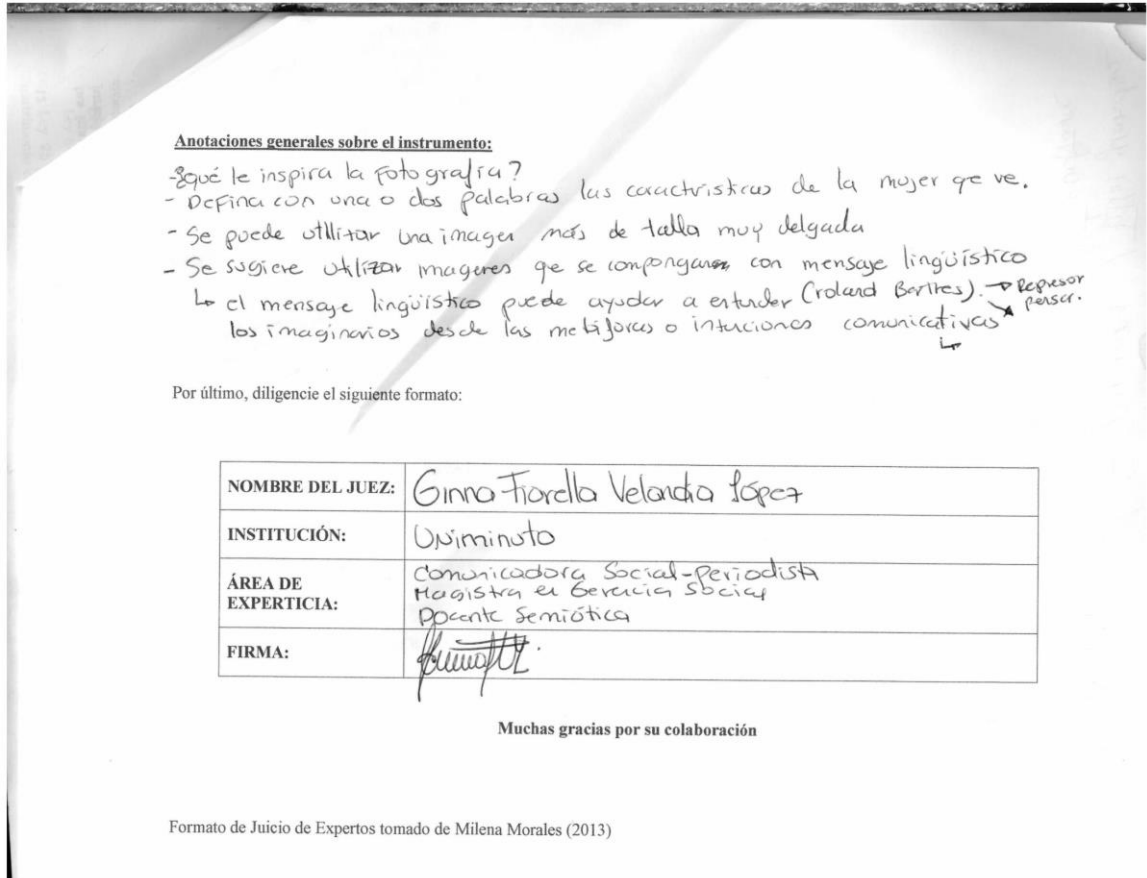 Anotaciones generales sobre el instrumento:
- ¿qué le inspira la fotografía?
- Defina con una o dos palabras las caractrísticas de la mujer qe ve.
- Se puede utilizar una imagen más de talla muy delgada
- Se sugiere utilizar imagenes qe se compongan con mensaje lingüístico
↳ el mensaje lingüístico puede ayudar a entender (roland Barthes). → Represor
pensar.
los imaginarios desde las metáforas o intenciones comunicativas
Por último, diligencie el siguiente formato:
NOMBRE DEL JUEZ: Ginna Fiorella Velandia López
INSTITUCIÓN: Uniminuto
ÁREA DE EXPERTICIA: Comunicadora Social-Periodista
Magistra en Gerencia Social
Docente Semiótica
FIRMA:
Muchas gracias por su colaboración
Formato de Juicio de Expertos tomado de Milena Morales (2013)